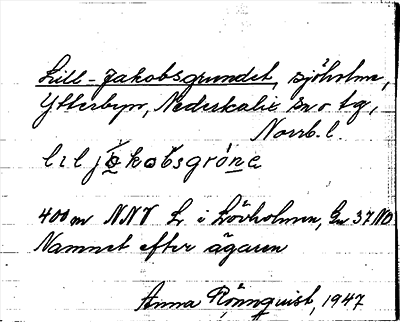 Lill-Jakobsgrundet, sjöholme,
Ytterbyn, Nederkalix sn o tg,
Norrb. l.
lıl jakobsgrónə
400 m NNV Lr i Lövholmen, Gsn 37 NO
Namnet efter ägaren
Anna Rönnquist, 1947